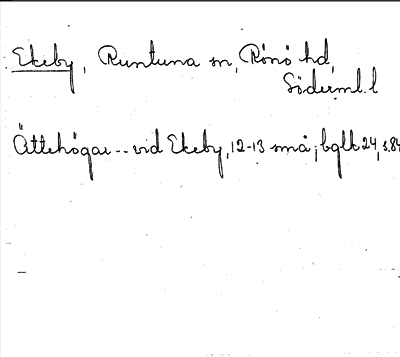 Ekeby, Runtuna sn, Rönö hd,
Söderml. l
Ättehögar -- vid Ekeby, 12-13 små; bglk 24, s. 84